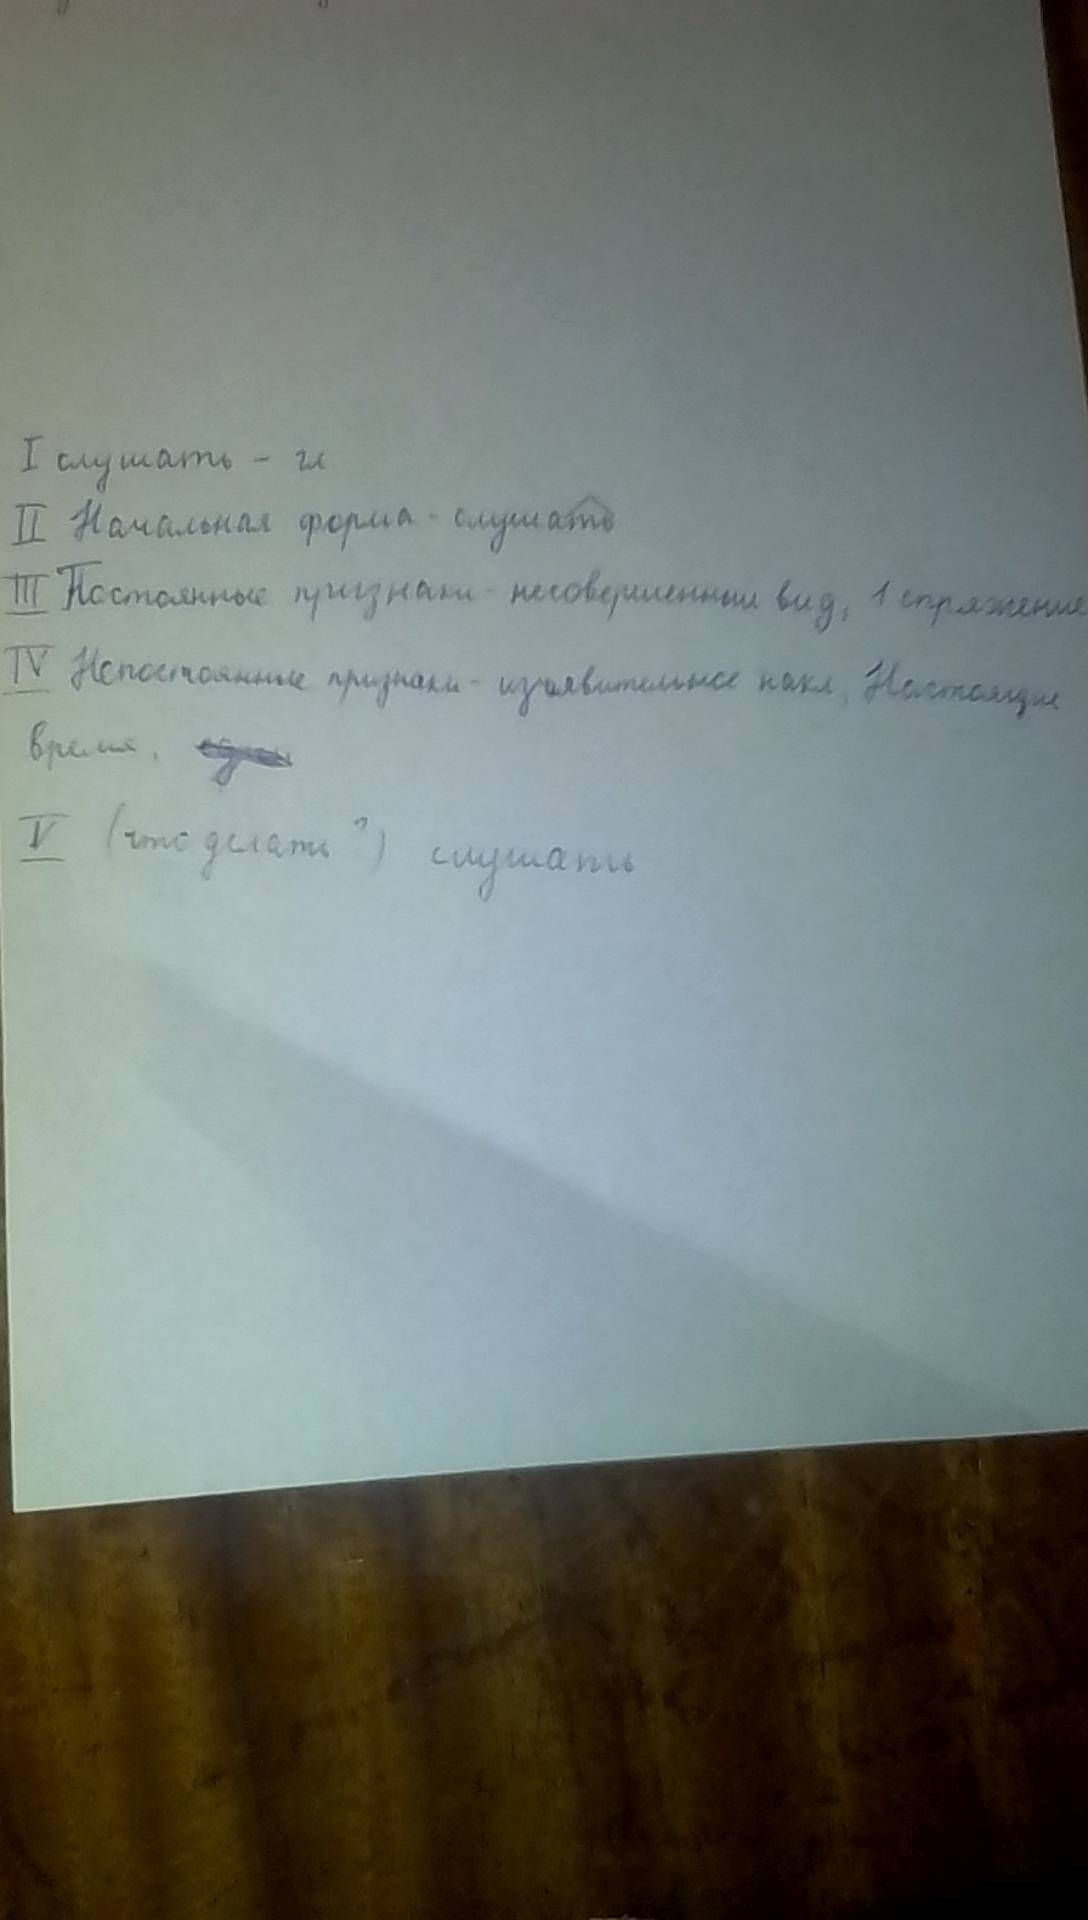 I слушать - гл
II Начальная форма - слушать
III Постоянные признаки - несовершенный вид, 1 спряжение
IV Непостоянные признаки - изъявительное накл, Настоящие
время,
V (что делать?) слушать